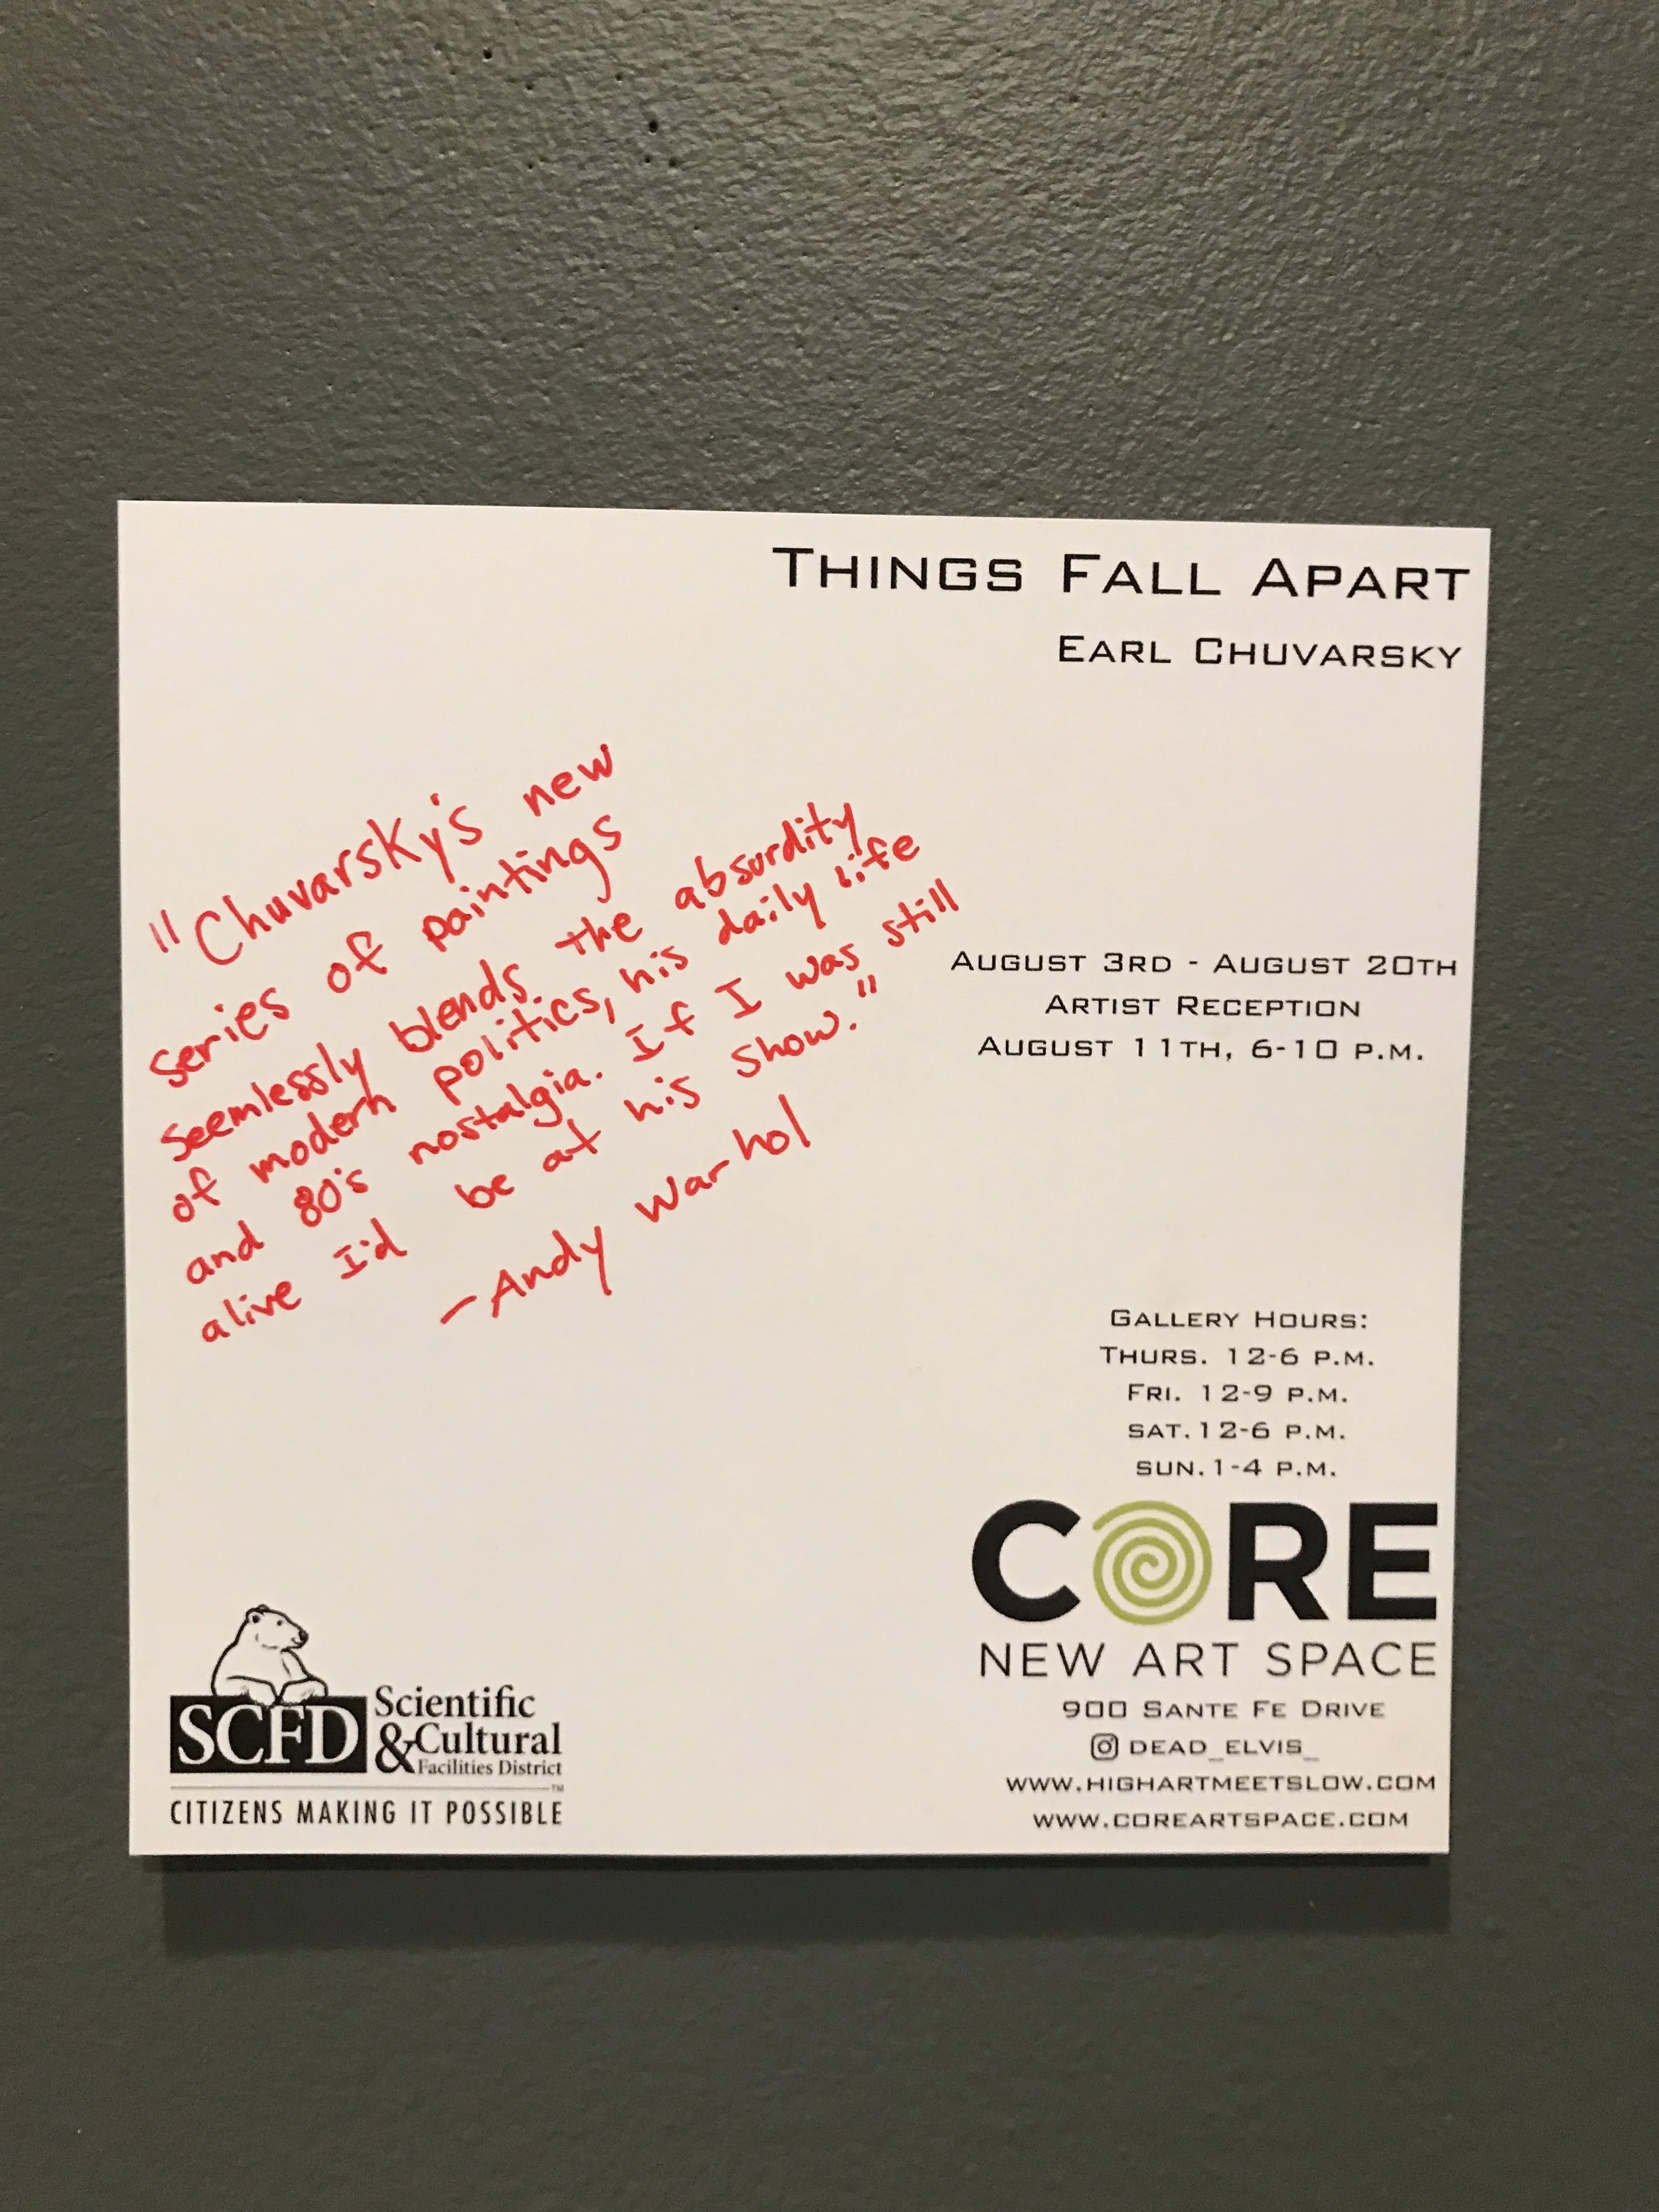 THINGS FALL APART
EARL CHUVARSKY
"Chuvarsky's new
series of paintings
seemlessly blends the absurdity
of modern politics, his daily life
and 80's nostalgia. If I was still
alive I'd be at his show."
-Andy Warhol
AUGUST 3RD - AUGUST 20TH
ARTIST RECEPTION
AUGUST 11TH, 6-10 P.M.
GALLERY HOURS:
THURS. 12-6 P.M.
FRI. 12-9 P.M.
SAT. 12-6 P.M.
SUN. 1-4 P.M.
CORE
NEW ART SPACE
900 SANTE FE DRIVE
DEAD_ELVIS_
WWW.HIGHARTMEETSLOW.COM
WWW.COREARTSPACE.COM
SCFD Scientific
&Cultural
Facilities District
TM
CITIZENS MAKING IT POSSIBLE